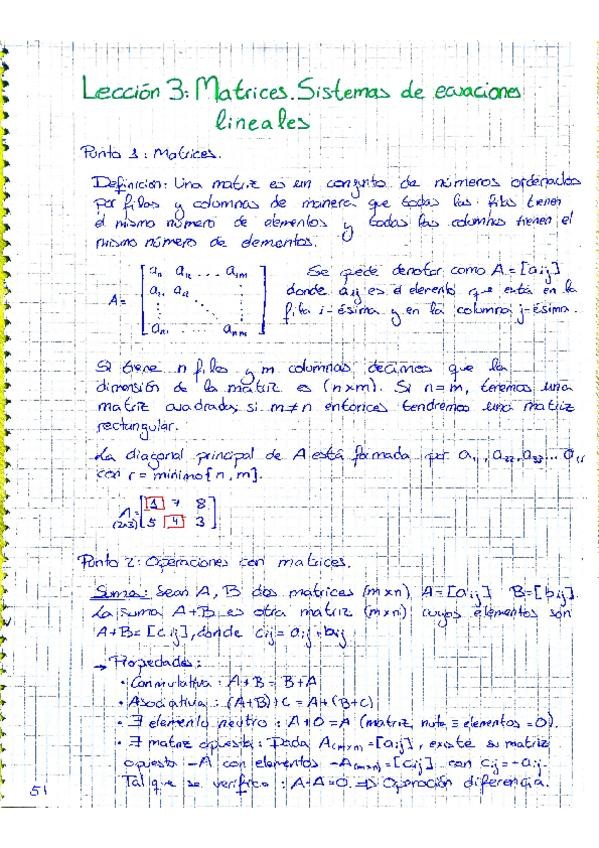 Lección 3: Matrices. Sistemas de ecuaciones
lineales
Punto 1: Matrices.
Definición: Una matriz es un conjunto de números ordenados
por filas y columnas de manera que todas las filas tienen
el mismo número de elementos y todas las columnas tienen el
mismo número de elementos.
A = [a₁₁ a₁₂ ... a₁m
a₂₁ a₂₂
an₁ ... anm]
Se puede denotar como A = [aij]
donde aij es el elemento que está en la
fila i-ésima y en la columna j-ésima.
Si tiene n filas y m columnas, decimos que la
dimensión de la matriz es (n×m). Si n=m, tenemos una
matriz cuadrada; si m≠n entonces tendremos una matriz
rectangular.
La diagonal principal de A está formada por a₁₁, a₂₂, a₃₃... arr
con r = mínimo{n, m}.
A = [1 7 8
(2×3) 5 4 3]
Punto 2: Operaciones con matrices.
Suma: Sean A, B dos matrices (m×n), A=[aij] B=[bij].
La suma A+B es otra matriz (m×n) cuyos elementos son
A+B = [cij], donde cij = aij + bij
→ Propiedades:
• Conmutativa: A+B = B+A
• Asociativa: (A+B)+C = A+(B+C)
• ∃ elemento neutro: A+0 = A (matriz nula ≡ elementos = 0).
• ∃ matriz opuesta: Dada A(m×n) = [aij], existe su matriz
opuesta -A con elementos -A(m×n) = [cij] con cij = -aij.
Tal que se verifica: A-A=0. ⇒ Operación diferencia.
51